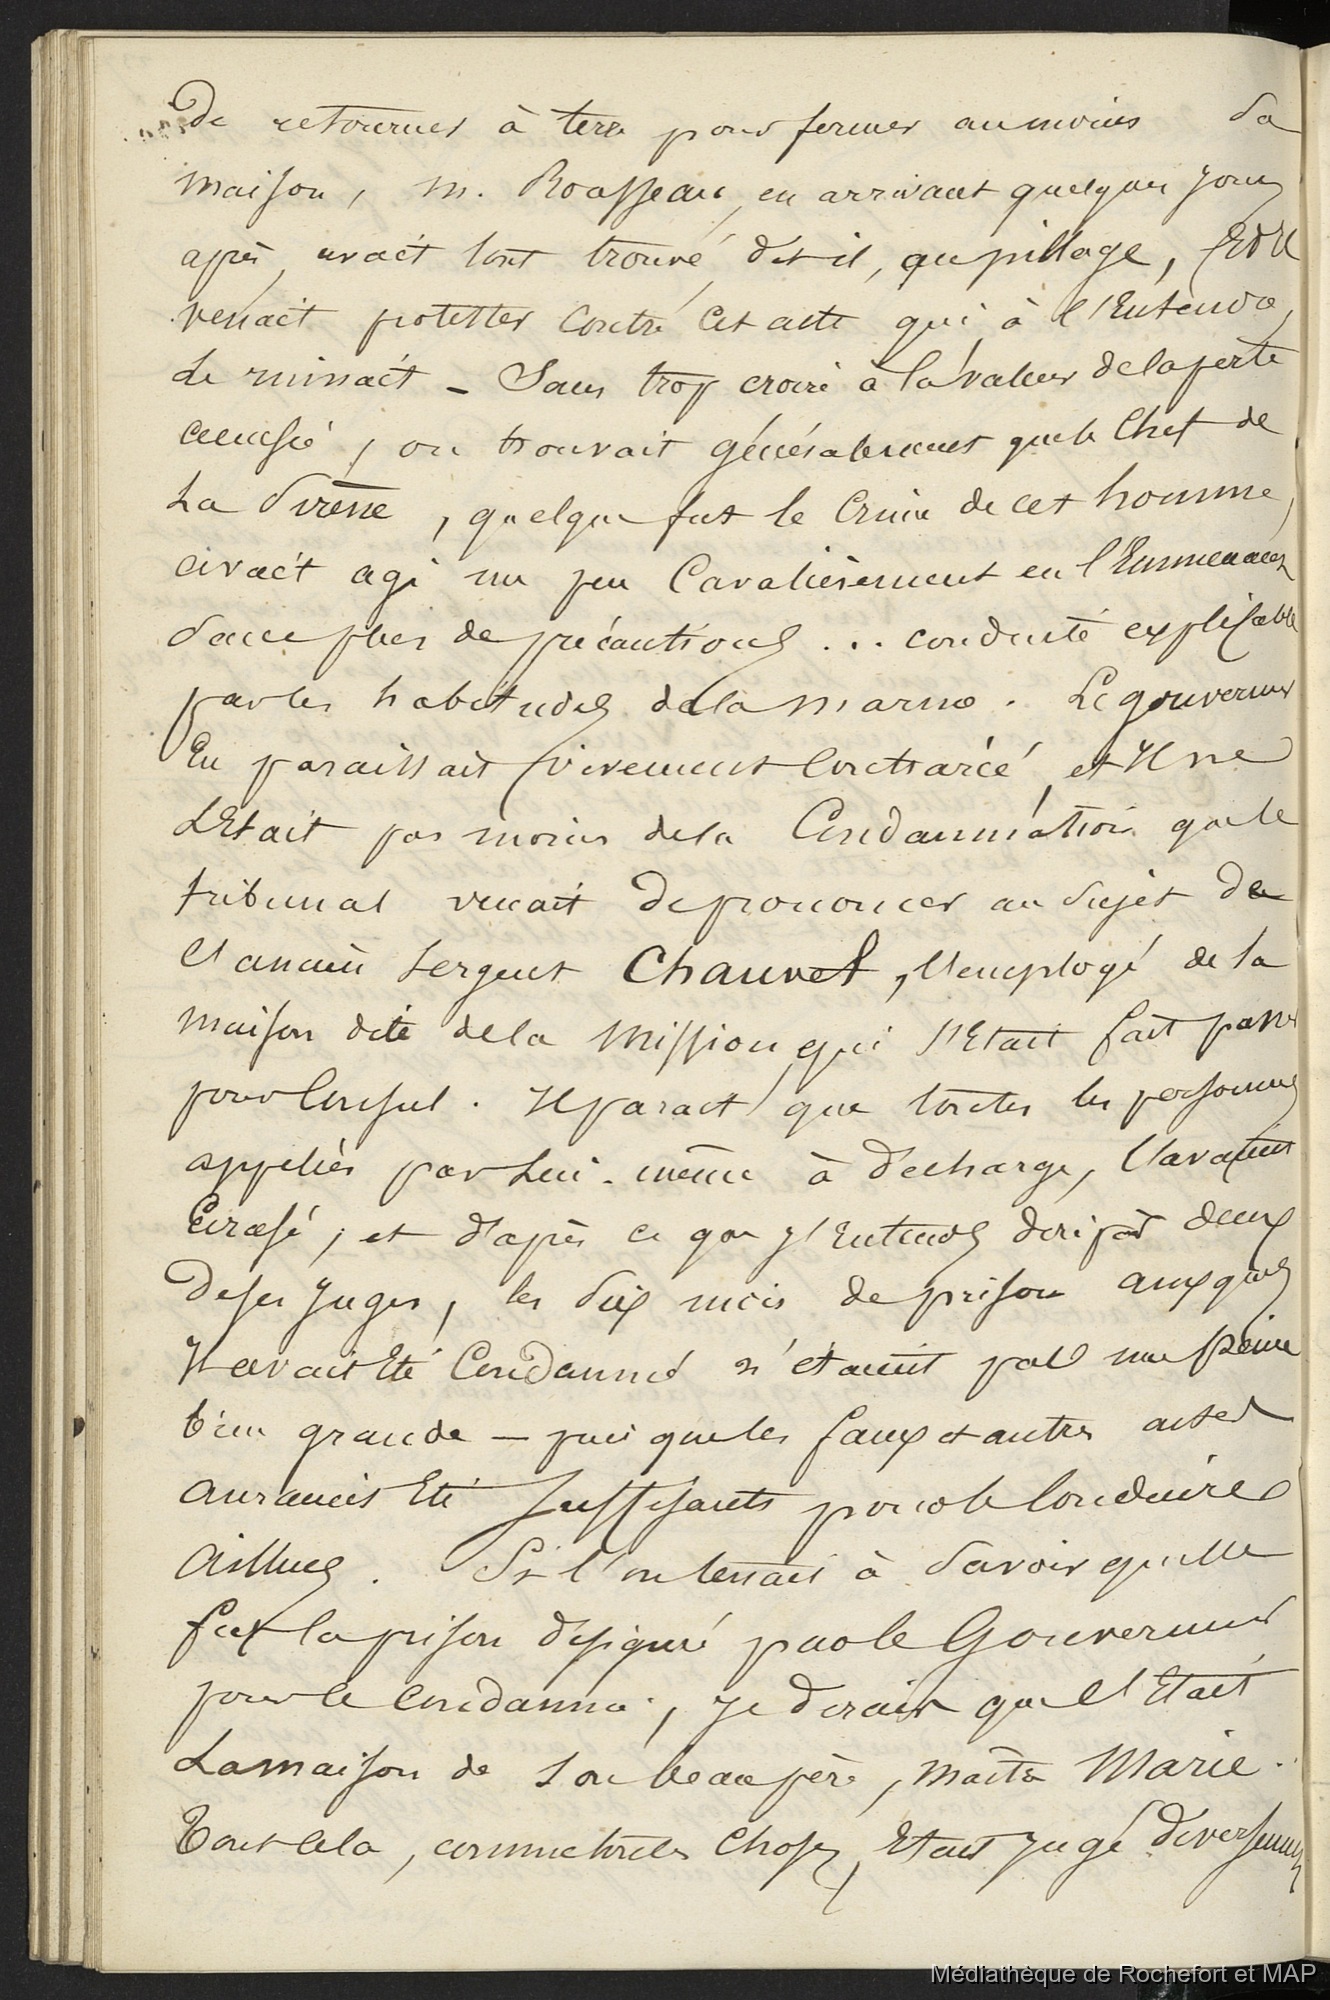 De retourner à terre pour fermer au moins sa
maison, M. Rousseau, en arrivant quelques jours
après, avait tout trouvé, dit-il, au pillage, Et Il
venait protester contre cet acte qui, à l'Entendre,
Le ruinait - Sans trop croire à la valeur de la perte
accusée, on trouvait généralement que le Chef de
La Sirène, quelque fut le Crime de cet homme,
avait agi un peu Cavalièrement en l'Emmenant
sans plus de précautions ... conduite explicable
par les habitudes de la marine. Le gouverneur
En paraissait vivement Contrarié, et Il ne
L'Etait pas moins de la Condamnation que le
tribunal venait De prononcer au Sujet De
l'ancien Sergent Chauvet, l'employé de la
maison dite de la Mission, qui s'Etait fait passer
pour Consul. Il parait que toutes les personnes
appelées par Lui-même à décharge, l'avaient
Ecrasé, et d'après ce que j'Entends dire par deux
De ses Juges, les Six mois de prison auxquels
Il avait Eté Condamné n'étaient pas une peine
bien grande - puisque les faux et autres actes
auraient Eté Suffisants pour le Conduire
Ailleurs. Si l'on tenait à Savoir quelle
fut la prison désignée par le Gouverneur
pour le Condamné, je dirais que c'Etait
La maison de son beau père, Maître Marie.
Tout cela, comme toutes Choses, Etait Jugé Diversement
Médiathèque de Rochefort et MAP